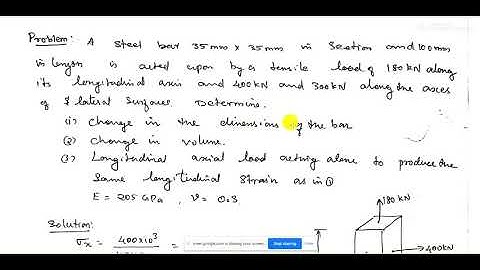 Problem: A steel bar 35mm x 35mm in section and 100mm
in length is acted upon by a tensile load of 180kN along
its longitudinal axis and 400kN and 300kN along the axes
of lateral surfaces Determine.
(1) Change in the dimensions of the bar
(2) Change in volume.
(3) Longitudinal axial load acting alone to produce the
Same longitudinal Strain as in ①
E = 205 GPa, ν = 0.3
180 kN
Solution:
σx = 400x10³ =
400kN
Stop sharing